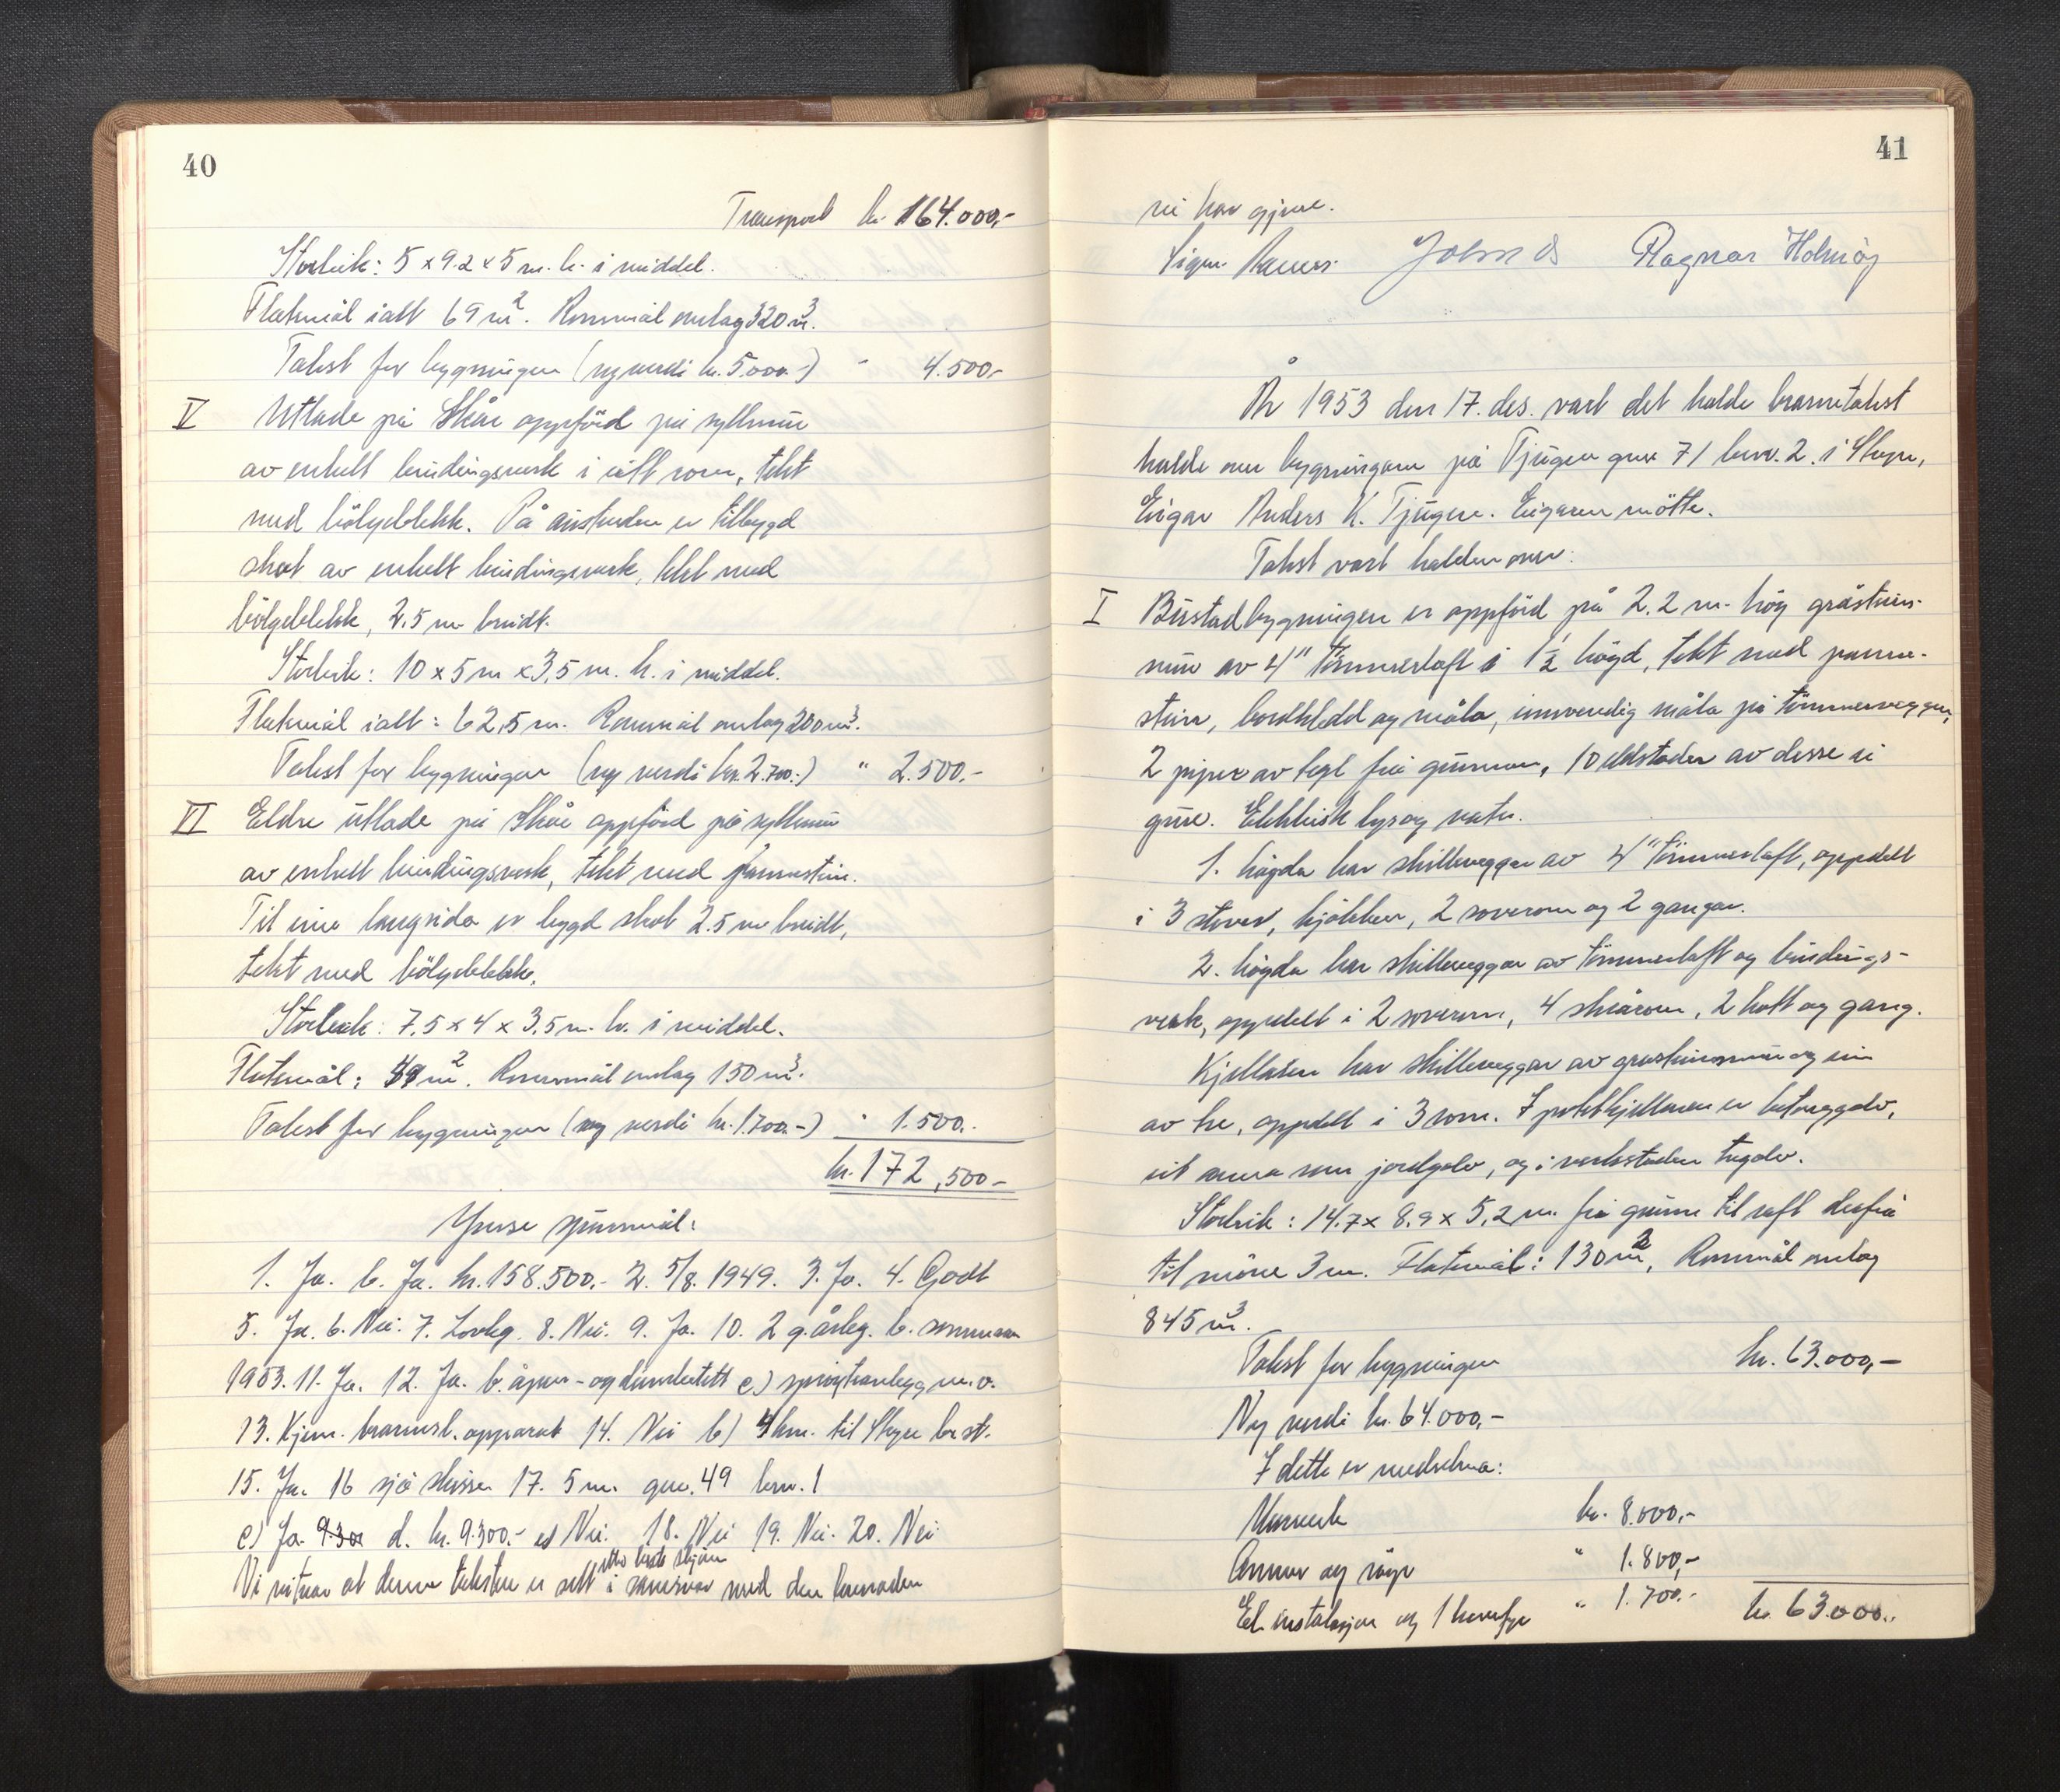 40
Transport kr. 164.000,-
Storleik: 5 x 9.2 x 5 m. h. i middel.
Flatemål ialt 69 m². Rommål omlag 320 m³.
Takst for bygningen (ny verdi kr. 5.000.-) " 4.500,-
V Utlade på Skåe oppförd på syllmur
av enkelt bindingsverk i eitt rom, tekt
med bölgeblekk. På austenden er tilbygd
skot av enkelt bindingsverk, tekt med
bölgeblekk, 2.5 m breidt.
Storleik: 10 x 5 m x 3,5 m. h. i middel.
Flatemål ialt: 62,5 m. Rommål omlag 200 m³.
Takst for bygningen (ny verdi kr. 2.700.-) " 2.500,-
VI Eldre utlade på Skåe oppförd på syllmur
av enkelt bindingsverk, tekt med pannestein.
Til eine langsida er bygd skot 2.5 m breidt,
tekt med bölgeblekk.
Storleik: 7.5 x 4 x 3.5 m. h. i middel.
Flatemål: 49 m². Rommål omlag 150 m³.
Takst for bygningen (ny verdi kr. 1.700.-) " 1.500.-
kr. 172,500-
Ymse spursmål:
1. Ja. b. Ja. kr. 158.500.- 2. 5/8. 1949. 3. Ja. 4. Godt
5. Ja. 6. Nei. 7. Lovleg. 8. Nei. 9. Ja. 10. 2 g. årleg. b. sommaren
1953. 11. Ja. 12. Ja. b. åpen- og c) m.o.
13. Kjem. brannsl. apparat 14. Nei b) 4 km. til Stryn br.st.
15. Ja. 16 sjå skisse 17. 5 m. gnr. 49 bnr. 1
c) Ja. 9.300 d. kr. 9.300.- e) Nei. 18. Nei 19. Nei. 20. Nei
etter beste skjön
Vi vitnar at denne taksten er sett i samsvar med den kunnaden
41
vi har gjeve.
Ragnar Holmöy
År 1953 den 17. des. vart det halde branntakst
halde over bygningane på Tjugen gnr 71 bnr. 2. i Stryn,
Eigar Anders K. Tjugen. Eigaren mötte.
Takst vart halden over:
I Bustadbygningen er oppförd på 2.2 m. hög gråsteins-
mur av 4" tömmerlaft i 1½ högd, tekt med panne-
stein, bordkledd og måla, innvendig måla på tömmerveggen,
2 piper av tegl frå grunnen, 10 eldstader av desse ei
grue. Elektrisk lys og vatn.
1. högda har skilleveggar av 4" tömmerlaft, oppdelt
i 3 stover, kjökken, 2 soverom og 2 gangar.
2. högda har skilleveggar av tömmerlaft og bindings-
verk, oppdelt i 2 soverom, 4 skrårom, 2 kott og gang.
Kjellaren har skilleveggar av gråsteinsmur og ein
av tre, oppdelt i 3 rom. I potetkjellaren er betonggolv,
eit anna rom jordgolv, og i verkstaden tregolv.
Storleik: 14.7 x 8.9 x 5,2 m. frå grunn til raft derfrå
til möne 3 m. Flatemål: 130 m², Rommål omlag
845 m³.
Takst for bygningen kr. 63.000,-
Ny verdi kr. 64.000,-
I dette er medrekna:
Murverk kr. 8.000,-
Omnar og rör " 1.800,-
El. instalasjon og 1 komfyr " 1.700.- kr. 63.000.-